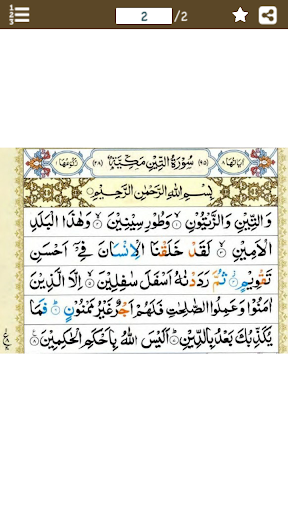 2 /2
اٰیاتها ۸ (۹۵) سُوْرَةُ التِّيْنِ مَكِّيَّةٌ (۲۸) رُكُوْعُهَا ۱
بِسْمِ اللّٰهِ الرَّحْمٰنِ الرَّحِيْمِ
وَ التِّيْنِ وَ الزَّيْتُوْنِ ۙ۱ وَ طُوْرِ سِيْنِيْنَ ۙ۲ وَ هٰذَا الْبَلَدِ
الْاَمِيْنِ ۙ۳ لَقَدْ خَلَقْنَا الْاِنْسَانَ فِیْۤ اَحْسَنِ
تَقْوِيْمٍ ۫۴ ثُمَّ رَدَدْنٰهُ اَسْفَلَ سٰفِلِيْنَ ۙ۵ اِلَّا الَّذِيْنَ
اٰمَنُوْا وَ عَمِلُوا الصّٰلِحٰتِ فَلَهُمْ اَجْرٌ غَيْرُ مَمْنُوْنٍ ؕ۶ فَمَا
يُكَذِّبُكَ بَعْدُ بِالدِّيْنِ ؕ۷ اَلَيْسَ اللّٰهُ بِاَحْكَمِ الْحٰكِمِيْنَ ۸